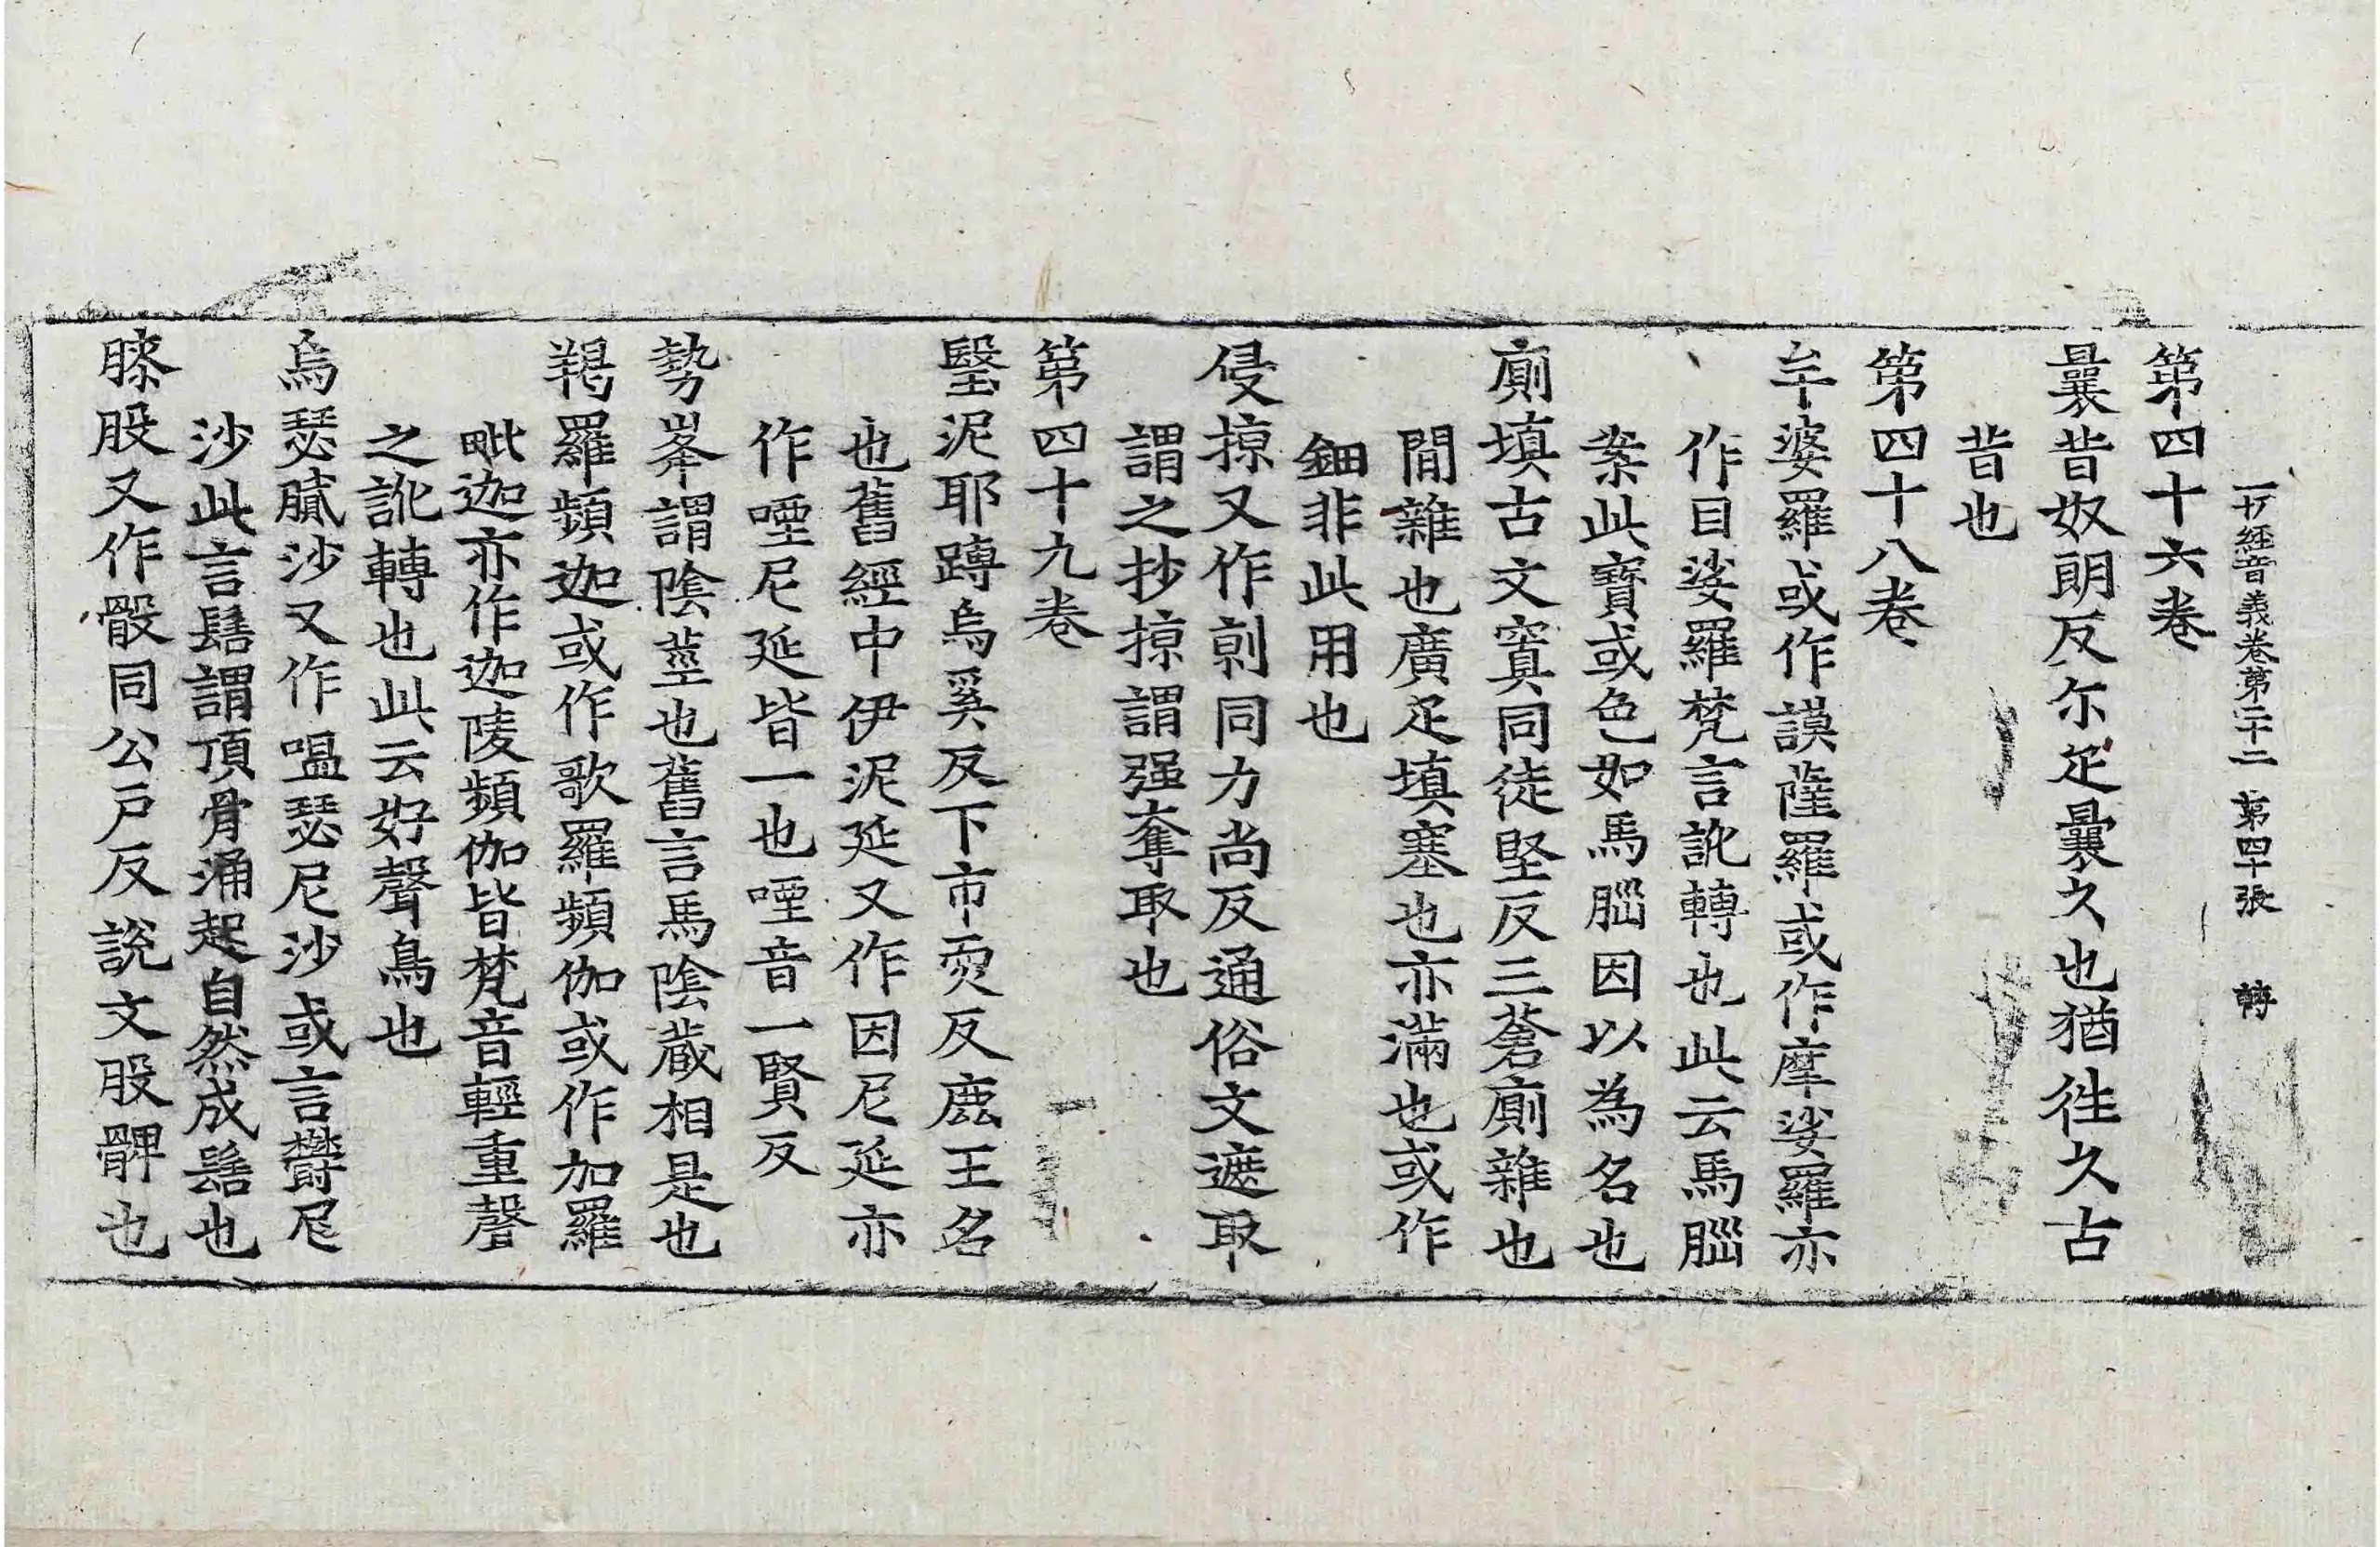 一切經音義卷第二十二 第四十張 轉
第四十六卷
曩昔奴朗反尒疋曩久也猶徃久古
昔也
第四十八卷
牟婆羅或作謨薩羅或作摩娑羅亦
作目娑羅梵言訛轉也此云馬腦
案此寶或色如馬腦因以為名也
廁填古文窴同徒堅反三蒼廁雜也
間雜也廣疋填塞也亦滿也或作
鈿非此用也
侵掠又作剠同力尚反通俗文遮取
謂之抄掠謂强奪取也
第四十九卷
瑿泥耶蹲烏奚反下市耎反鹿王名
也舊經中伊泥延又作因尼延亦
作𠼝尼延皆一也𠼝音一賢反
勢峯謂陰莖也舊言馬陰藏相是也
羯羅頻迦或作歌羅頻伽或作加羅
毗迦亦作迦陵頻伽皆梵音輕重聲
之訛轉也此云好聲鳥也
烏瑟膩沙又作嗢瑟尼沙或言欝尼
沙此言髻謂頂骨涌起自然成髻也
䏶股又作骰同公戶反說文股髀也